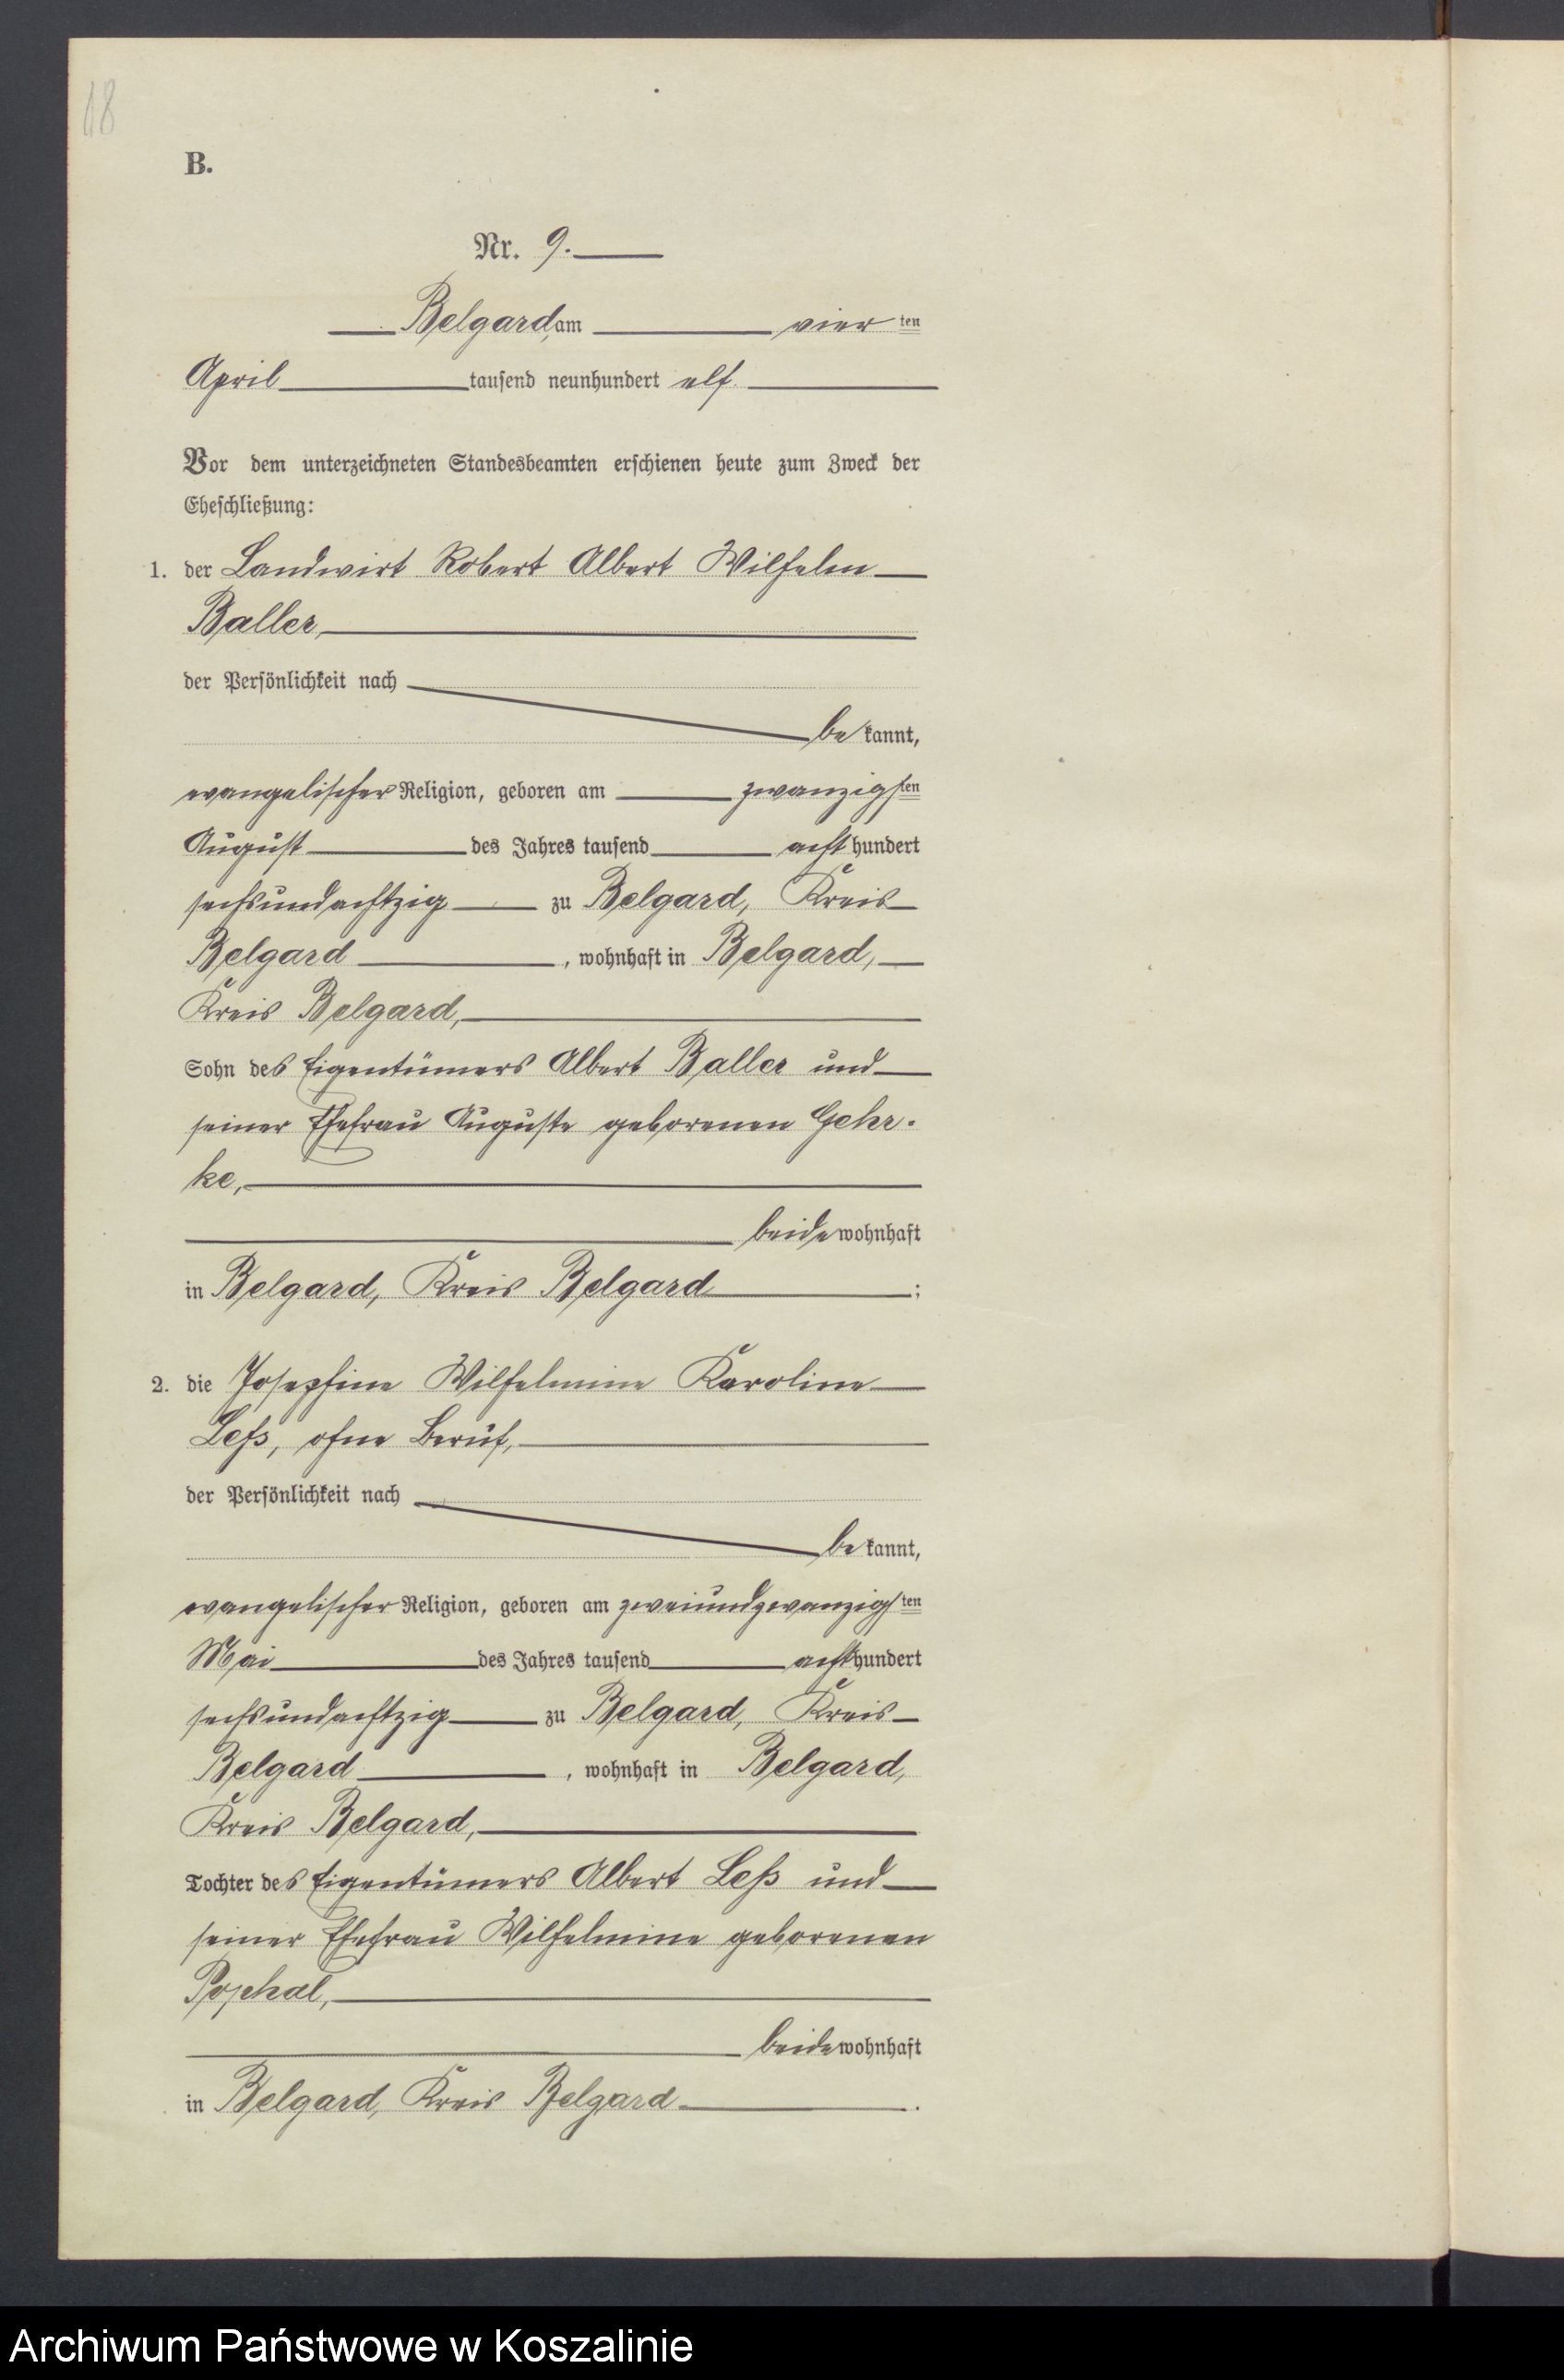 18
B.
Nr. 9.
Belgard, am vier ten
April tausend neunhundert elf.
Vor dem unterzeichneten Standesbeamten erschienen heute zum Zweck der
Eheschließung:
1. der Landwirt Robert Albert Wilhelm
Baller,
der Persönlichkeit nach
be kannt,
evangelischer Religion, geboren am zwanzigsten
August des Jahres tausend acht hundert
sechsundachtzig zu Belgard, Kreis
Belgard, wohnhaft in Belgard,
Kreis Belgard,
Sohn des Eigentümers Albert Baller und
seiner Ehefrau Auguste geborenen Gehr-
ke,
beide wohnhaft
in Belgard, Kreis Belgard;
2. die Josephine Wilhelmine Karoline
Leß, ohne Beruf,
der Persönlichkeit nach
be kannt,
evangelischer Religion, geboren am zweiundzwanzigsten
Mai des Jahres tausend acht hundert
sechsundachtzig zu Belgard, Kreis
Belgard, wohnhaft in Belgard,
Kreis Belgard,
Tochter des Eigentümers Albert Leß und
seiner Ehefrau Wilhelmine geborenen
Pophal,
beide wohnhaft
in Belgard, Kreis Belgard.
Archiwum Państwowe w Koszalinie